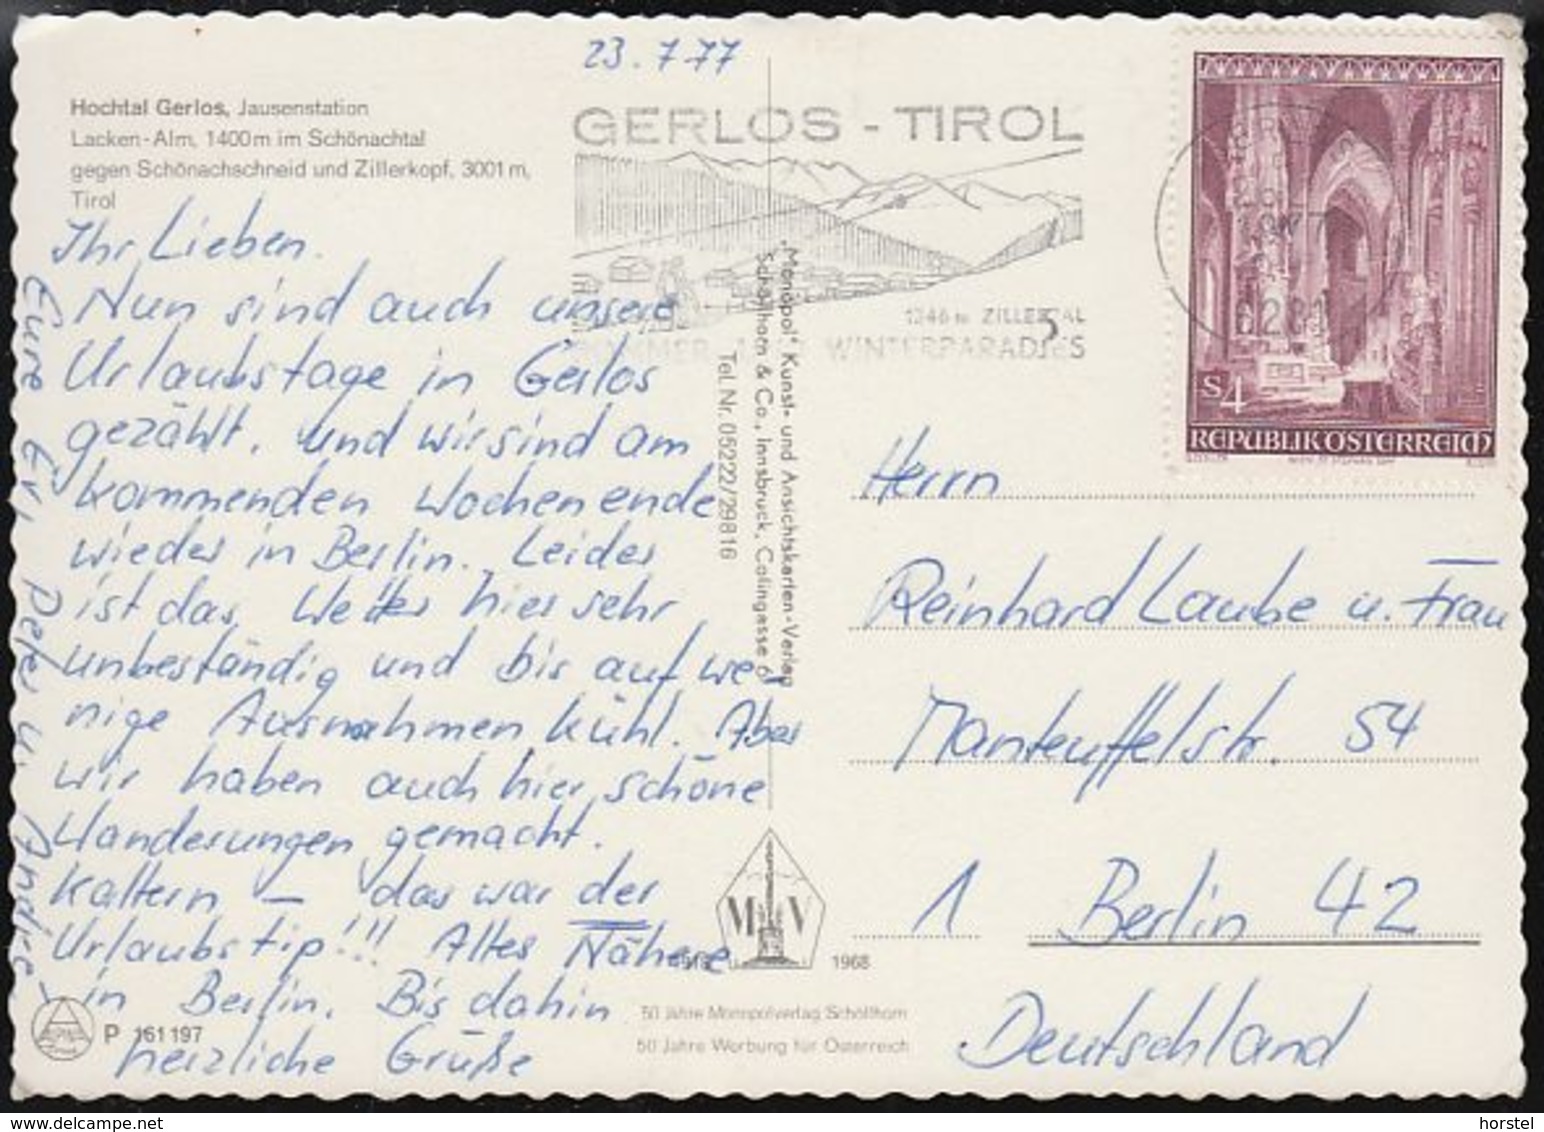 23.7.77
Hochtal Gerlos, Jausenstation
Lacken-Alm, 1400 m im Schönachtal
gegen Schönachschneid und Zillerkopf, 3001 m,
Tirol
Ihr Lieben.
Nun sind auch unsere
Urlaubstage in Gerlos
gezählt, und wir sind am
kommenden Wochenende
wieder in Berlin. Leider
ist das Wetter hier sehr
unbeständig und bis auf we-
nige Ausnahmen kühl. Aber
wir haben auch hier schöne
Wanderungen gemacht.
Kaltern – das war der
Urlaubstip!!! Alles Nähere
in Berlin. Bis dahin
herzliche Grüße
Eure Evi, Peter u. Andrea
P 161 197
GERLOS - TIROL
1246 m ZILLERTAL
SOMMER WINTERPARADIES
1977
6281
S4
REPUBLIK ÖSTERREICH
"Monopol" Kunst- und Ansichtskarten-Verlag
Schöllhorn & Co., Innsbruck, Colingasse 6
Tel. Nr. 05222/29816
Herrn
Reinhard Laube u. Frau
Manteuffelstr. 54
1 Berlin 42
Deutschland
M V
1918 1968
50 Jahre Monopolverlag Schöllhorn
50 Jahre Werbung für Österreich
horstel
www.delcampe.net